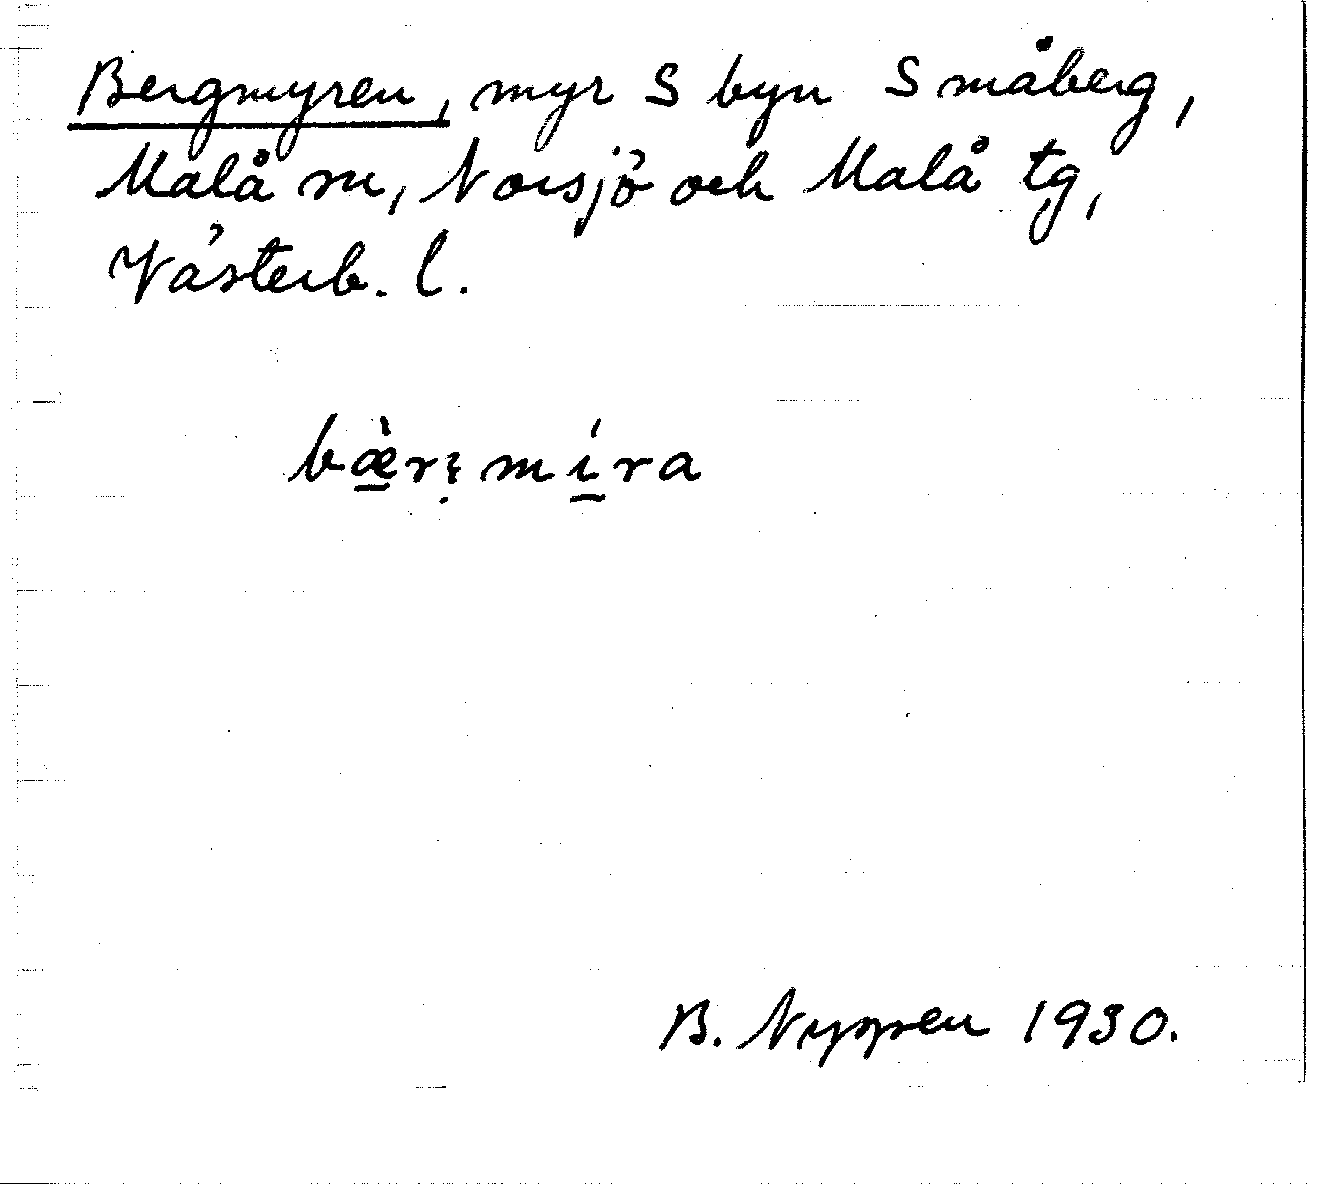 Bergmyren, myr S byn Småberg,
Malå sn, Norsjö och Malå tg,
Västerb. l.
B. Nyppen 1930.